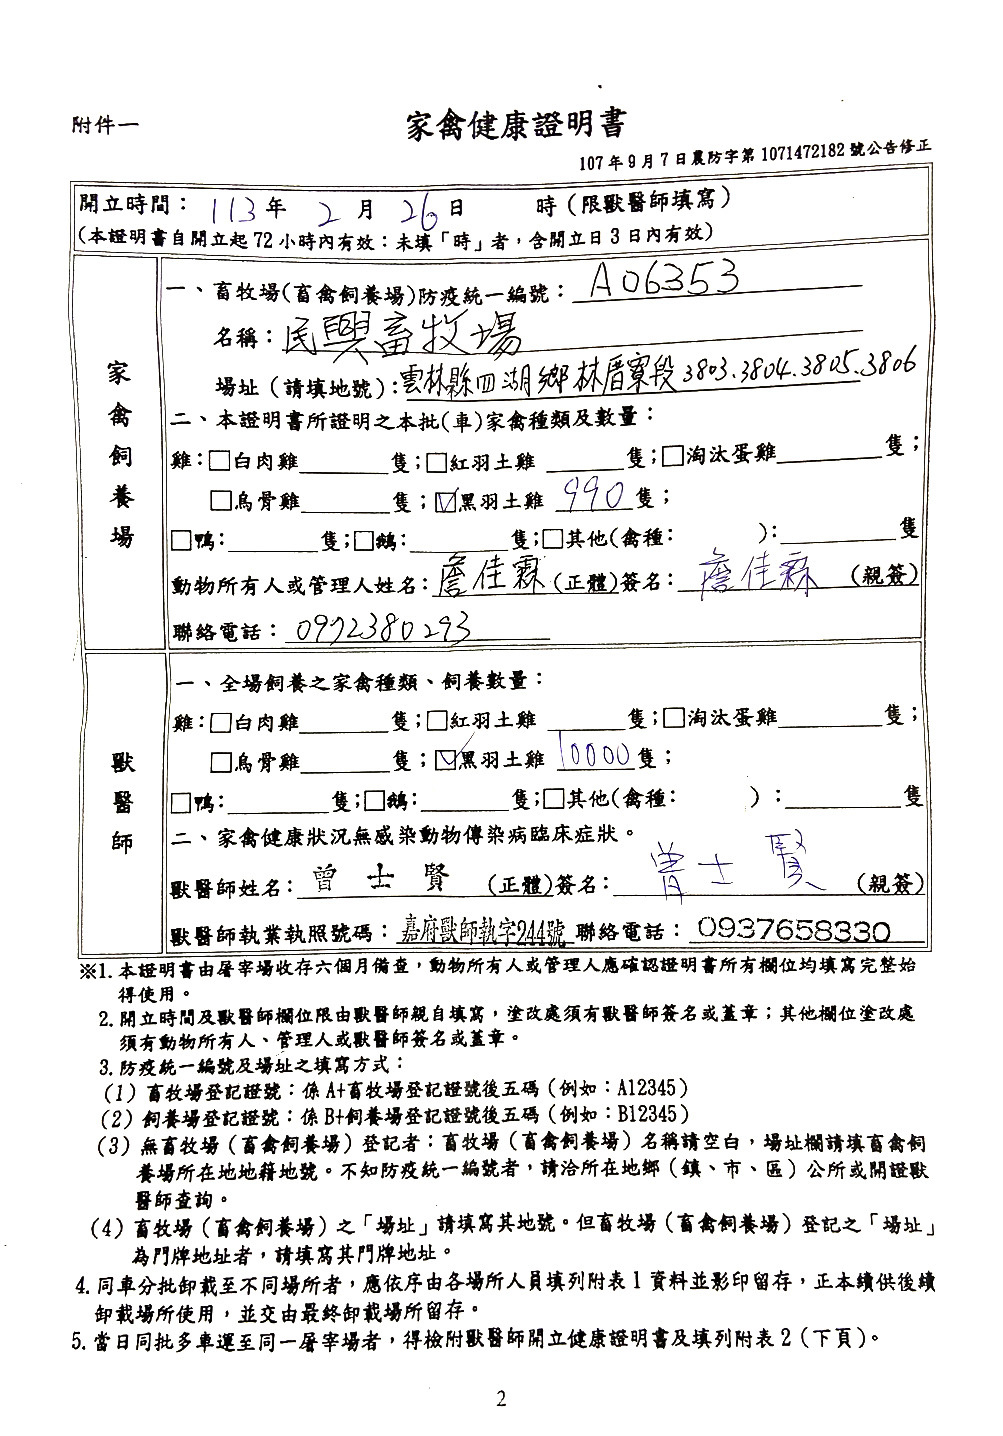 附件一
家禽健康證明書
107年9月7日農防字第1071472182號公告修正
開立時間：113年 2月 26日 時(限獸醫師填寫)
(本證明書自開立起72小時內有效：未填「時」者，含開立日3日內有效)
家禽飼養場
一、畜牧場(畜禽飼養場)防疫統一編號：A06353
名稱：民興畜牧場
場址（請填地號）：雲林縣四湖鄉林厝寮段3803.3804.3805.3806
二、本證明書所證明之本批(車)家禽種類及數量：
雞：□白肉雞______隻；□紅羽土雞______隻；□淘汰蛋雞______隻；
□烏骨雞______隻；☑黑羽土雞 990 隻；
□鴨：______隻；□鵝：______隻；□其他(禽種：　　)：______隻
動物所有人或管理人姓名：詹佳霖(正體)簽名：詹佳霖（親簽）
聯絡電話：0972380293
獸醫師
一、全場飼養之家禽種類、飼養數量：
雞：□白肉雞______隻；□紅羽土雞______隻；□淘汰蛋雞______隻；
□烏骨雞______隻；☑黑羽土雞 10000隻；
□鴨：______隻；□鵝：______隻；□其他(禽種：　　)：______隻
二、家禽健康狀況無感染動物傳染病臨床症狀。
獸醫師姓名：曾士賢（正體）簽名：曾士賢（親簽）
獸醫師執業執照號碼：嘉府獸師執字244號 聯絡電話：0937658330
※1.本證明書由屠宰場收存六個月備查，動物所有人或管理人應確認證明書所有欄位均填寫完整始
得使用。
2.開立時間及獸醫師欄位限由獸醫師親自填寫，塗改處須有獸醫師簽名或蓋章；其他欄位塗改處
須有動物所有人、管理人或獸醫師簽名或蓋章。
3.防疫統一編號及場址之填寫方式：
(1)畜牧場登記證號：係A+畜牧場登記證號後五碼（例如：A12345）
(2)飼養場登記證號：係B+飼養場登記證號後五碼（例如：B12345）
(3)無畜牧場（畜禽飼養場）登記者：畜牧場（畜禽飼養場）名稱請空白，場址欄請填畜禽飼
養場所在地地籍地號。不知防疫統一編號者，請洽所在地鄉（鎮、市、區）公所或開證獸
醫師查詢。
(4)畜牧場（畜禽飼養場）之「場址」請填寫其地號。但畜牧場（畜禽飼養場）登記之「場址」
為門牌地址者，請填寫其門牌地址。
4.同車分批卸載至不同場所者，應依序由各場所人員填列附表1資料並影印留存，正本續供後續
卸載場所使用，並交由最終卸載場所留存。
5.當日同批多車運至同一屠宰場者，得檢附獸醫師開立健康證明書及填列附表2（下頁）。
2